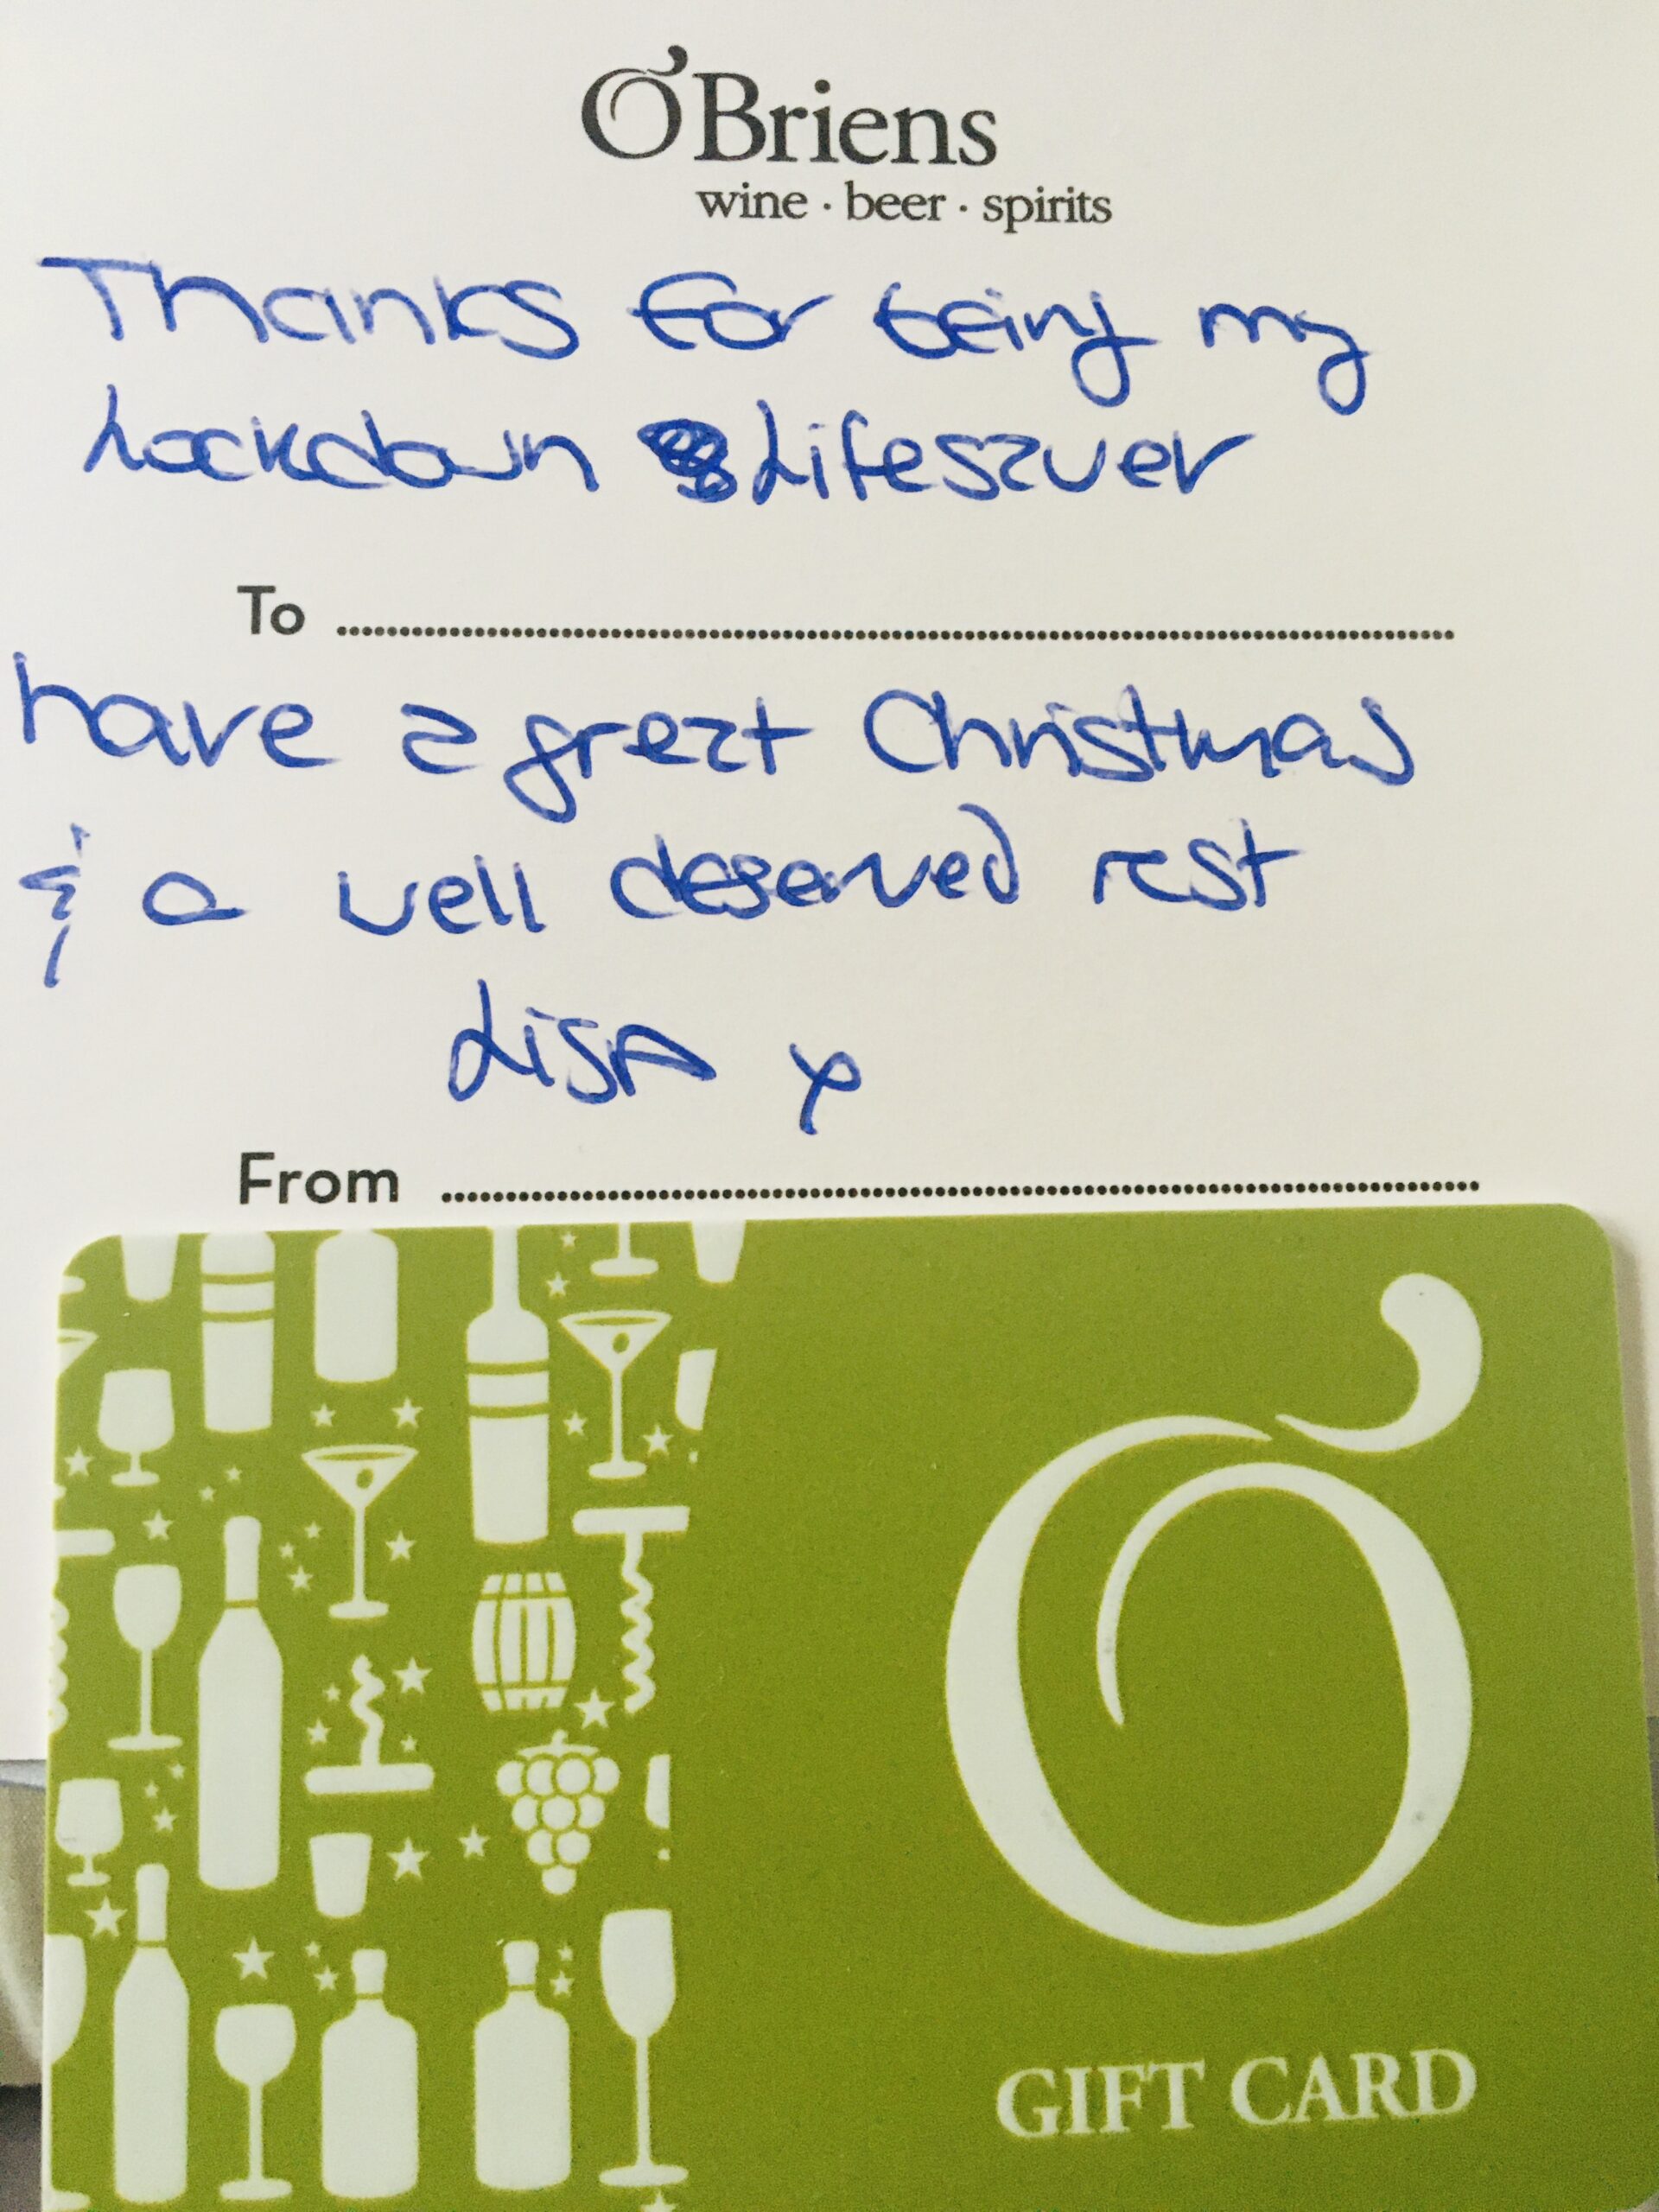 O'Briens
wine · beer · spirits
Thanks for being my
Lockdown Lifesaver
To
have a great Christmas
& a well deserved rest
Lisa x
From
Ó
GIFT CARD